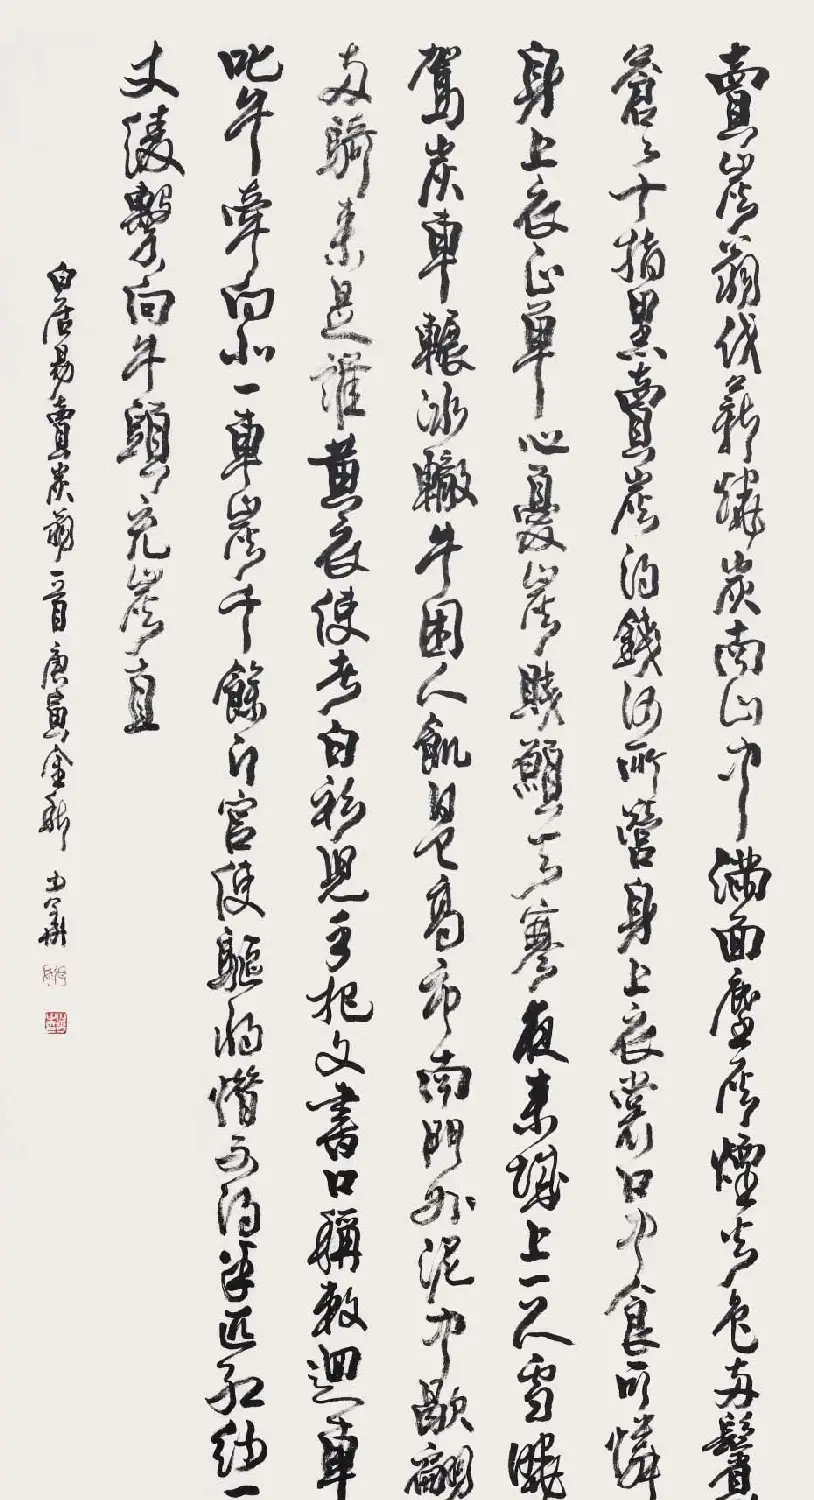 賣炭翁伐薪燒炭南山中滿面塵灰煙火色兩鬢
蒼々十指黑賣炭得錢何所營身上衣裳口中食可憐
身上衣正單心憂炭賤願天寒夜來城上一尺雪曉
駕炭車輾冰轍牛困人飢日已高市南門外泥中歇翩
兩騎來是誰黃衣使者白衫兒手把文書口稱敕迴車
叱牛牽向北一車炭千餘斤官使驅將惜不得半匹紅紗一
丈綾繫向牛頭充炭直
白居易賣炭翁一首庚寅金秋